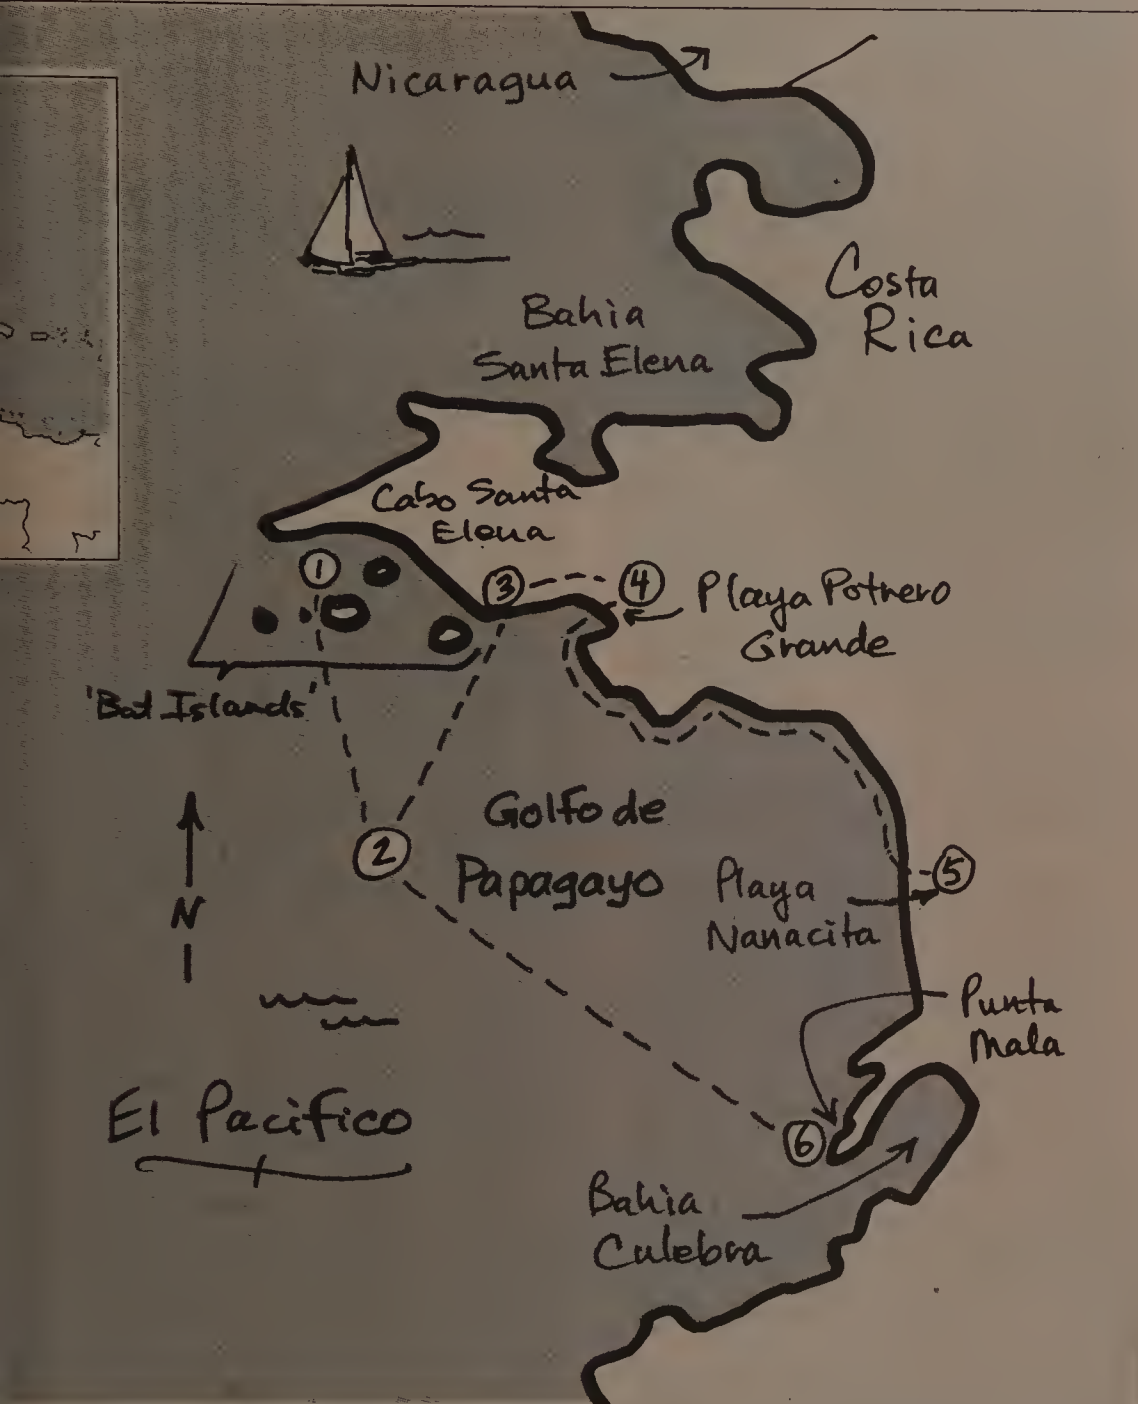 Nicaragua
Costa
Rica
Bahia
Santa Elena
Cabo Santa
Elena
1
3
4
Playa Potrero
Grande
'Bat Islands'
Golfo de
Papagayo
2
Playa
Nanacita
5
N
Punta
Mala
El Pacifico
6
Bahia
Culebra